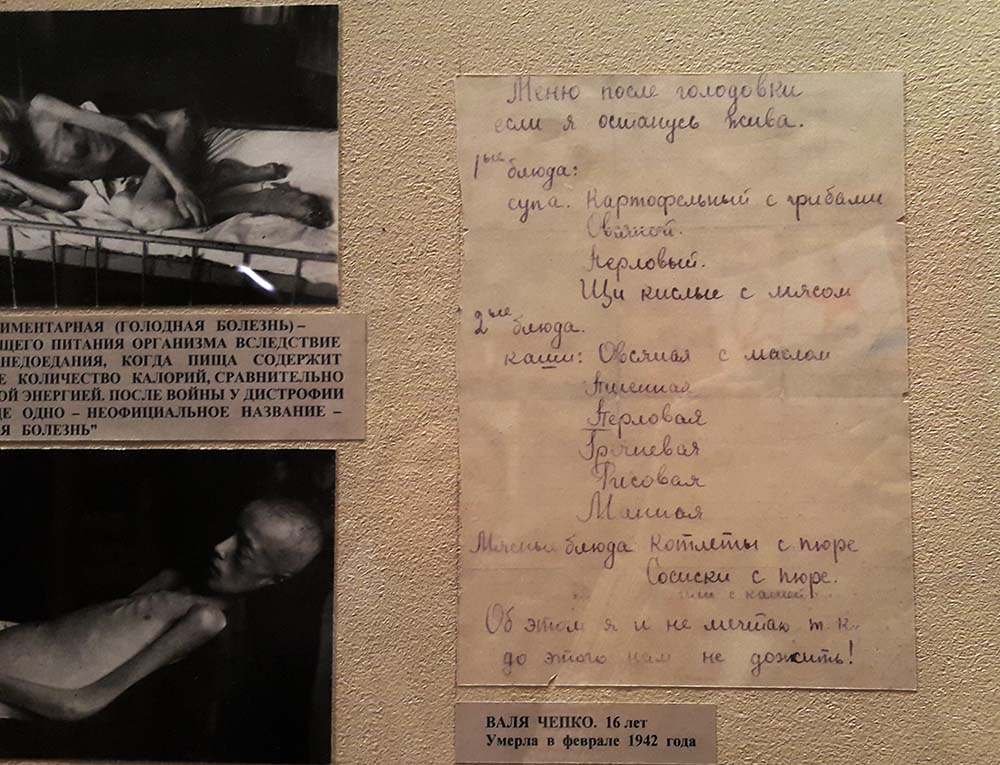 ИМЕНТАРНАЯ (ГОЛОДНАЯ БОЛЕЗНЬ) –
ЩЕГО ПИТАНИЯ ОРГАНИЗМА ВСЛЕДСТВИЕ
НЕДОЕДАНИЯ, КОГДА ПИЩА СОДЕРЖИТ
Е КОЛИЧЕСТВО КАЛОРИЙ, СРАВНИТЕЛЬНО
ОЙ ЭНЕРГИЕЙ. ПОСЛЕ ВОЙНЫ У ДИСТРОФИИ
ЩЕ ОДНО – НЕОФИЦИАЛЬНОЕ НАЗВАНИЕ –
Я БОЛЕЗНЬ”
Меню после голодовки
если я останусь жива.
1ые блюда:
супа. Картофельный с грибами
Овсяной.
Перловый.
Щи кислые с мясом
2ые блюда.
каши: Овсяная с маслом
Пшенная
Перловая
Гречневая
Рисовая
Манная
Мясные блюда Котлеты с пюре
Сосиски с пюре.
или с кашей
Об этом я и не мечтаю т. к.
до этого нам не дожить!
ВАЛЯ ЧЕПКО. 16 лет
Умерла в феврале 1942 года